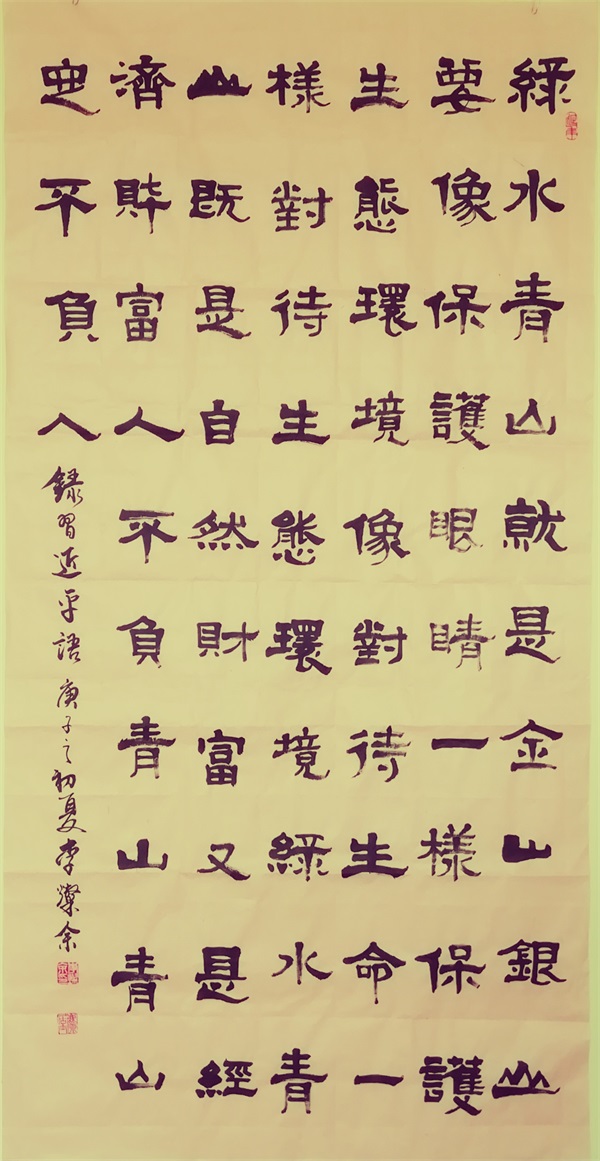 綠水青山就是金山銀山
要像保護眼睛一樣保護
生態環境像對待生命一
樣對待生態環境綠水青
山既是自然財富又是經
濟財富人不負青山青山
定不負人
錄習近平語庚子之初夏李燦余